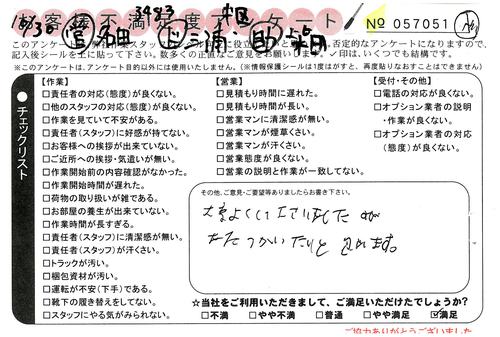 お客様不満足度アンケート
3483
№ 057051
このアンケートは、弊社作業スタッフ
否定的なアンケートになりますので、
記入後シールを上に貼って下さい。数多くの正直なご意見をお願いします。✓印は、いくつでも結構です。
※このアンケートは、アンケート目的以外には使用いたしません。(※情報保護シールは1度はがすと、再度貼りなおすことはできません)
チェックリスト
【作業】
□責任者の対応(態度)が良くない。
□他のスタッフの対応(態度)が良くない。
□作業を見ていて不安がある。
□責任者(スタッフ)に好感が持てない。
□お客様への挨拶が出来ていない。
□ご近所への挨拶・気遣いが無い。
□作業開始前の内容確認がなかった。
□作業開始時間が遅れた。
□荷物の取り扱いが雑である。
□お部屋の養生が出来ていない。
□作業時間が長すぎる。
□責任者(スタッフ)に清潔感が無い。
□責任者(スタッフ)が汗くさい。
□トラックが汚い。
□梱包資材が汚い。
□運転が不安(下手)である。
□靴下の履き替えをしてない。
□スタッフにやる気がみられない。
【営業】
□見積もり時間に遅れた。
□見積もり時間が長い。
□営業マンに清潔感が無い。
□営業マンが煙草くさい。
□営業マンが汗くさい。
□営業態度が良くない。
□営業の説明と作業が一致してない。
【受付・その他】
□電話の対応が良くない。
□オプション業者の説明
・作業が良くない。
□オプション業者の対応
(態度)が良くない。
その他、ご意見・ご要望等ありましたらお書き下さい。
☆当社をご利用いただきまして、ご満足いただけたでしょうか?
□不満 □やや不満 □普通 □やや満足 ☑満足
ご協力ありがとうございました